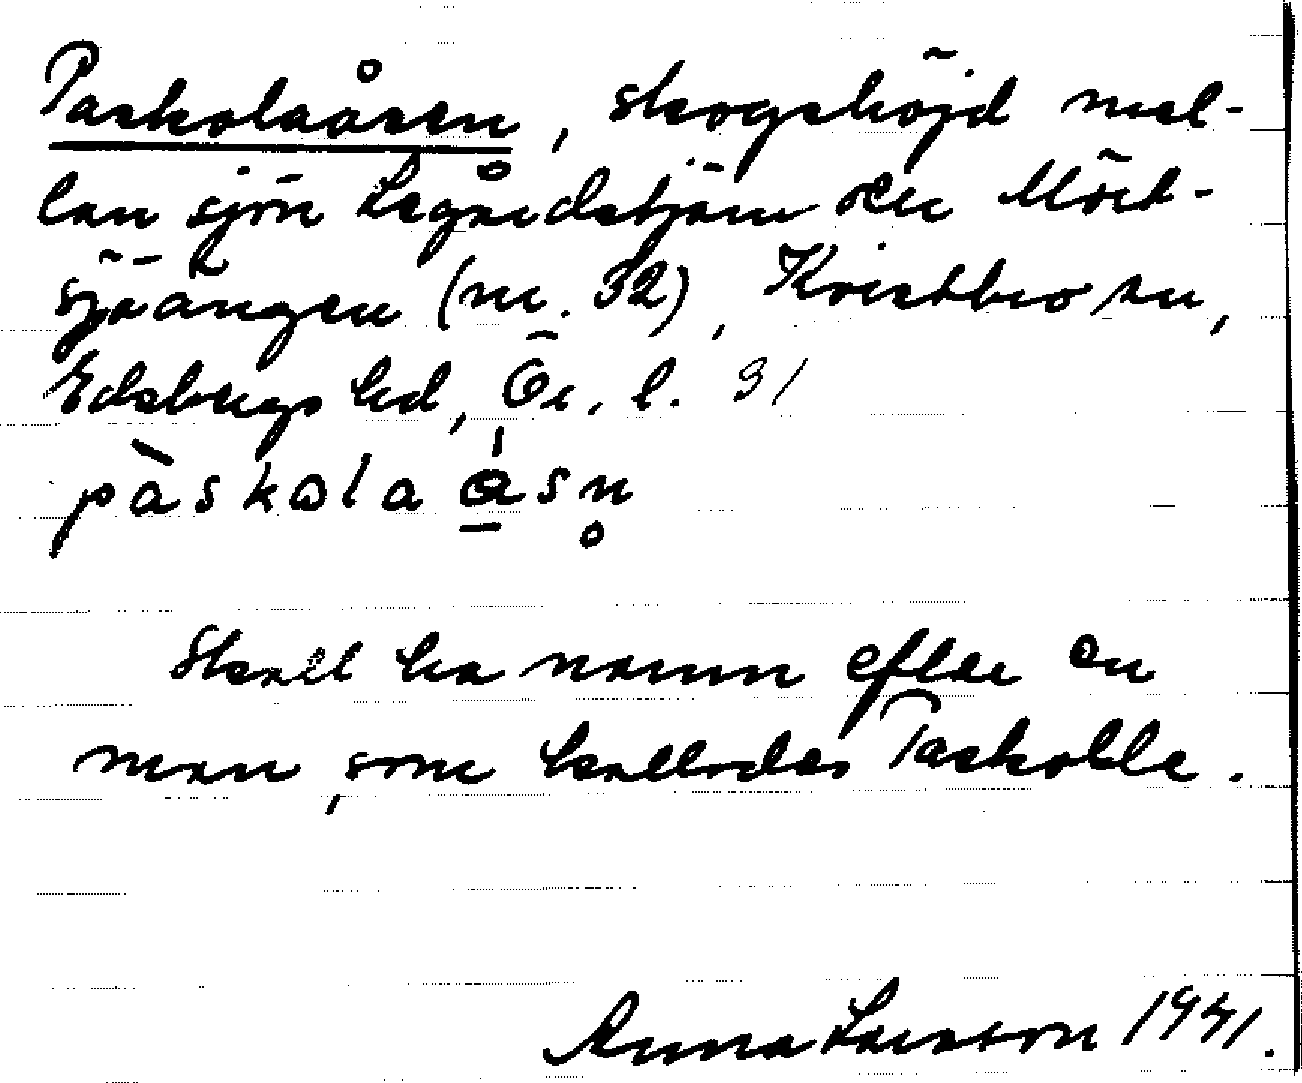 Paskolaåsen, skogshöjd mel-
lan sjön Legårdstjärn och Mört-
sjöängen (nr. 32), Kvistbro sn,
Edsbergs hd, Ör. l. 31
pàskωla ås n̥
Skall ha namn efter en
man, som kallades Paskolle.
Anna Larsson 1941.